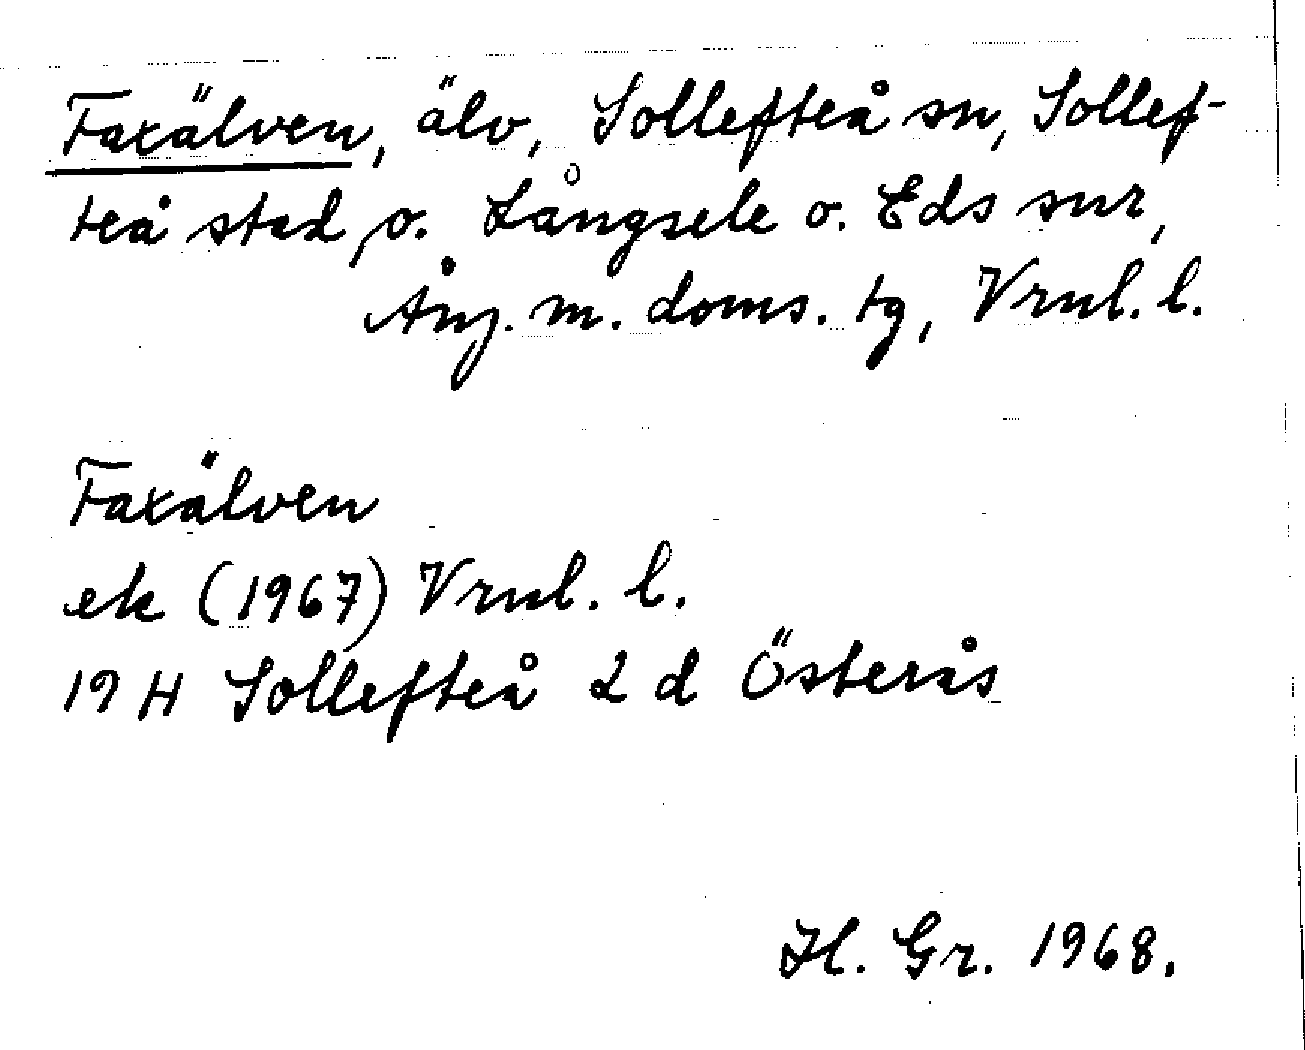 Faxälven, älv, Sollefteå sn, Sollef-
teå stad, o. Långsele o. Eds snr,
Ånj. m. doms. tg, Vrnl. l.
Faxälven
ek (1967) Vrnl. l.
19 H Sollefteå 2 d Österås
H. Gr. 1968.